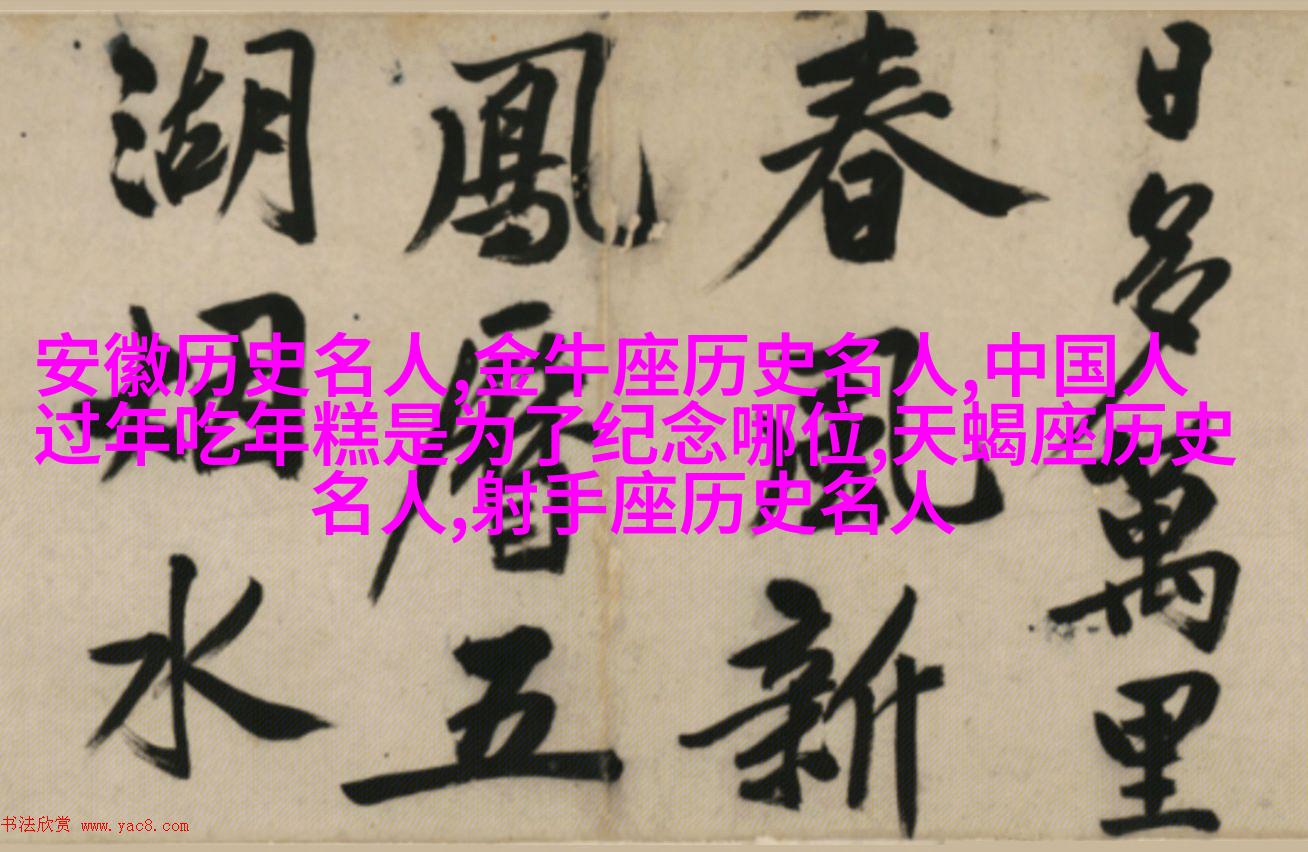 安徽历史名人,金牛座历史名人,中国人
过年吃年糕是为了纪念哪位,天蝎座历史
名人,射手座历史名人
日名萬里
春風新
鳳曆五
湖烟水
书法欣赏 www.yac8.com